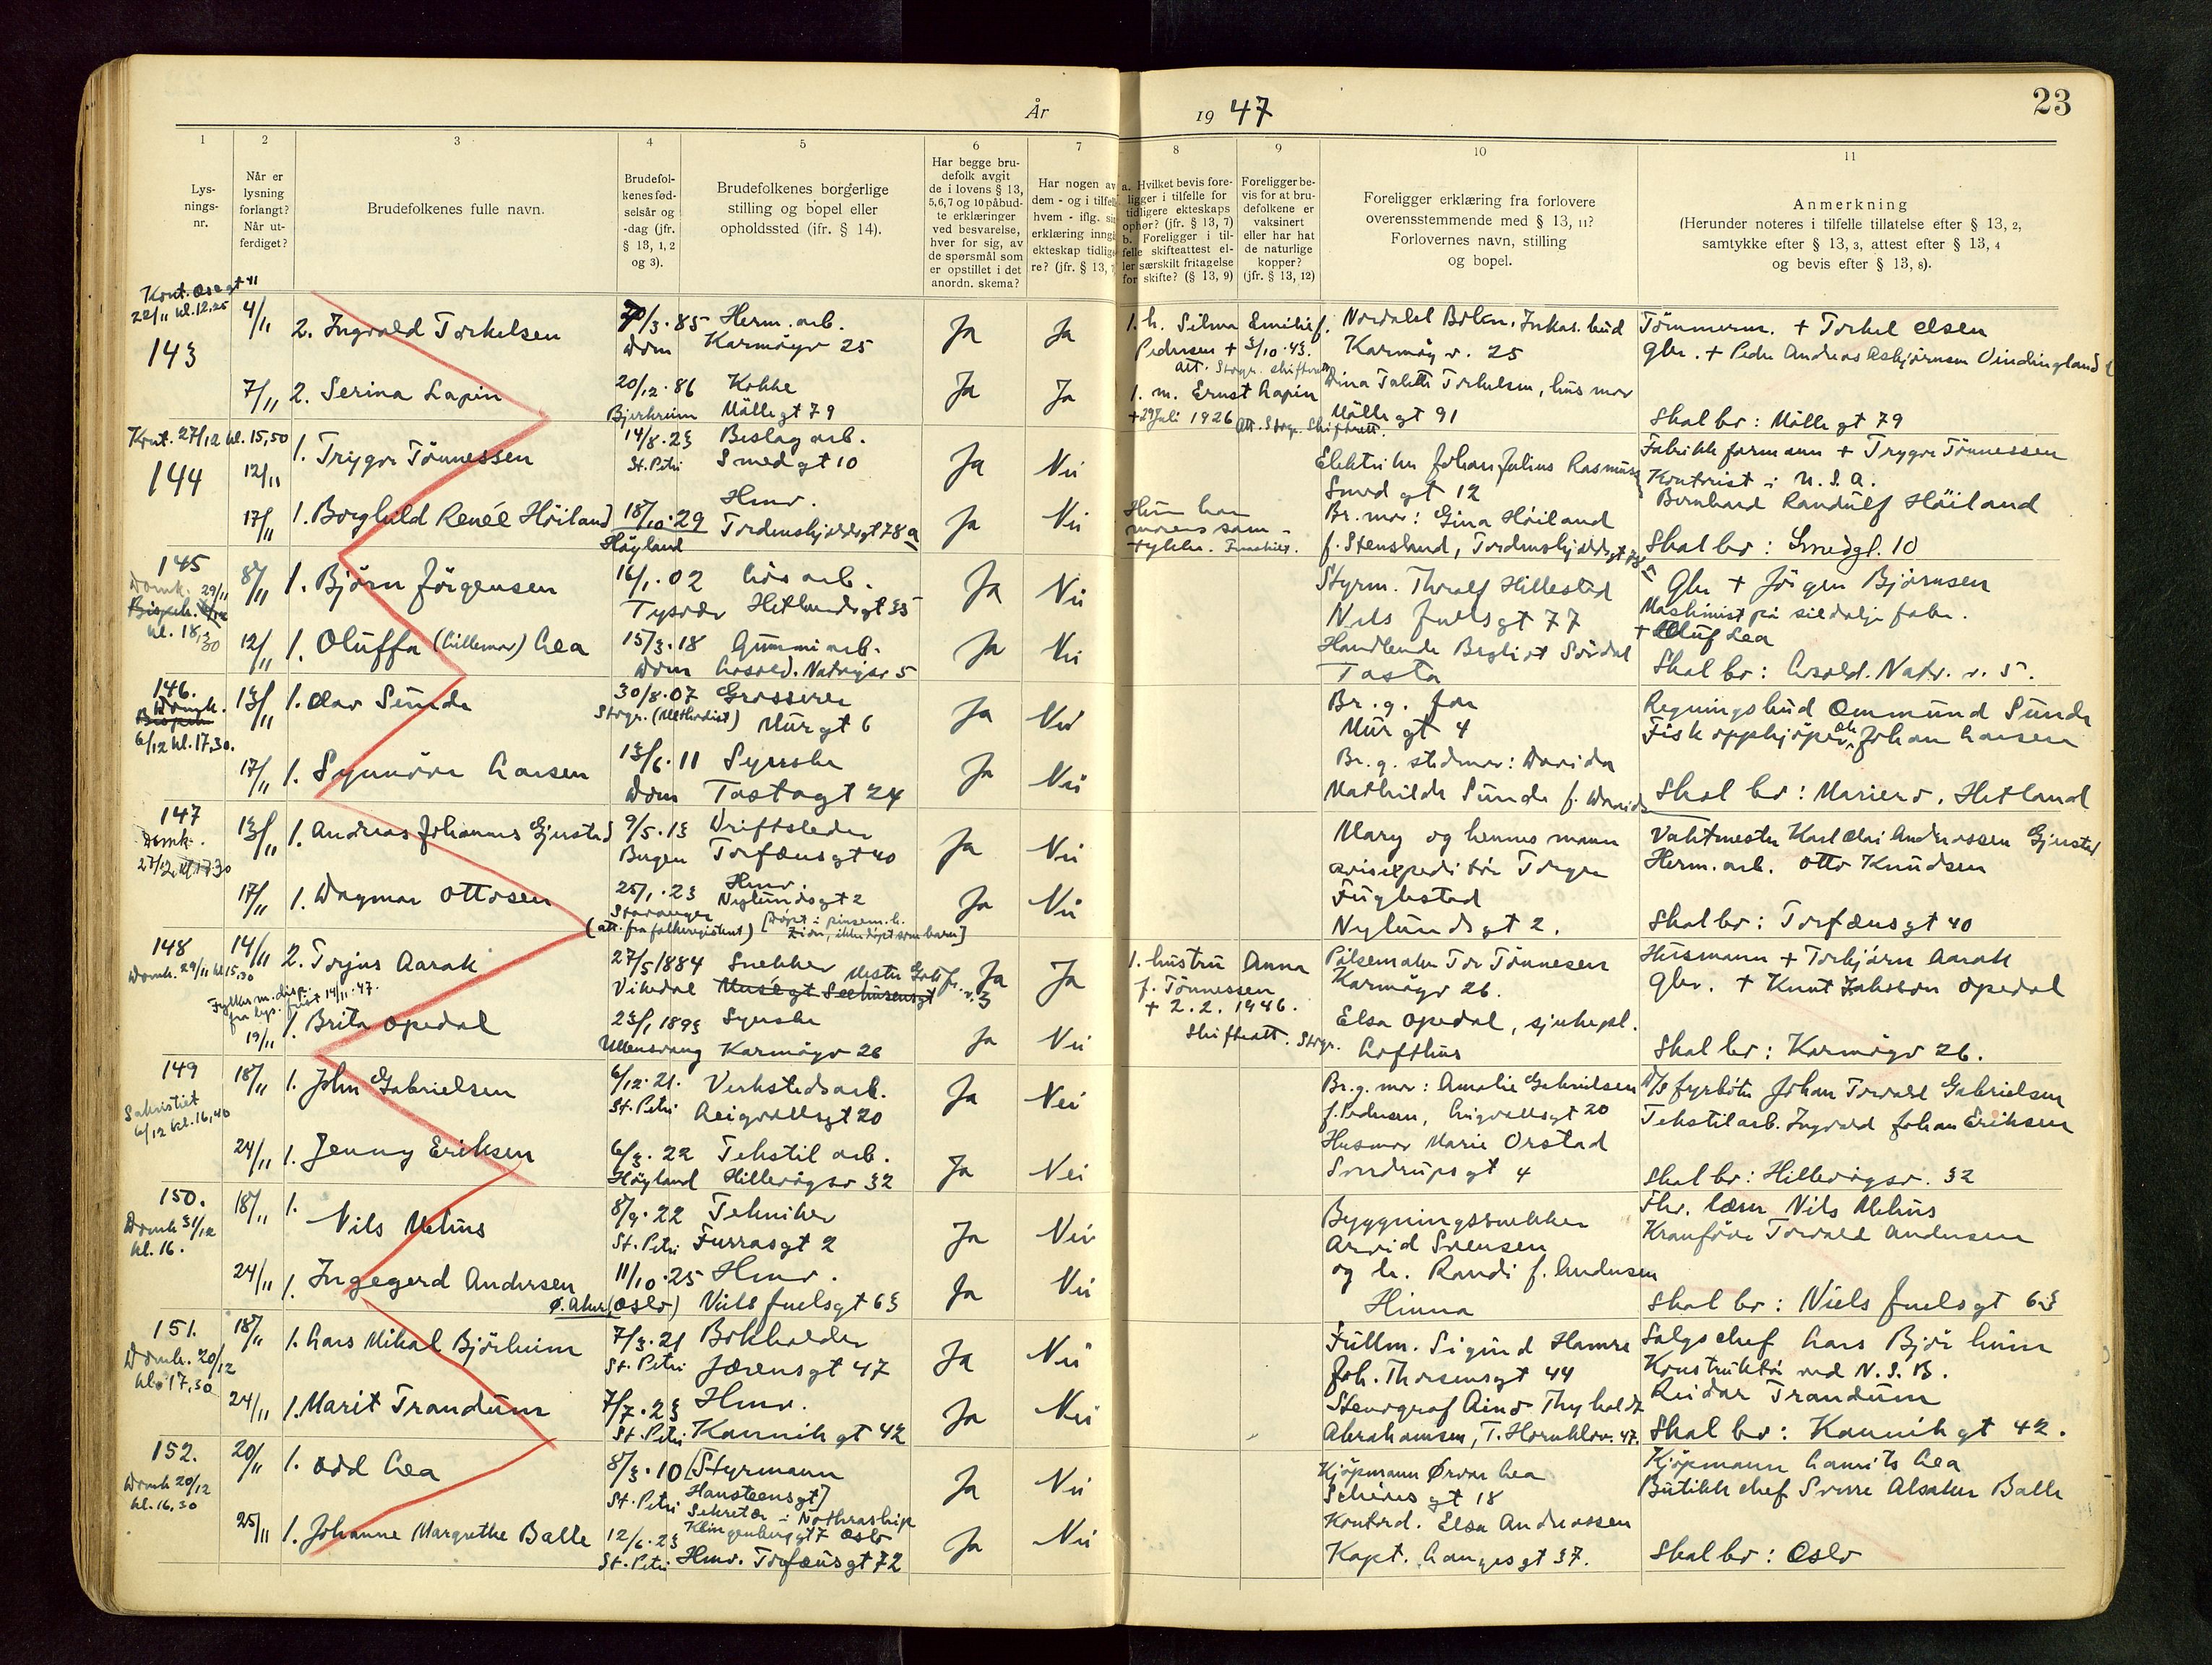 År 1947
23
1 2 3 4 5 6 7 8 9 10 11
Lysningsnr.
Når er lysning forlangt? Når utferdiget?
Brudefolkenes fulle navn.
Brudefolkenes fødselsår og -dag (jfr. § 13, 1, 2 og 3).
Brudefolkenes borgerlige stilling og bopel eller opholdssted (jfr. § 14).
Har begge brudefolk avgit de i lovens § 13, 5,6,7 og 10 påbudte erklæringer ved besvarelse, hver for sig, av de spørsmål som er opstillet i det anordn. skema?
Har nogen av dem - og i tilfelle hvem - iflg. sin erklæring inngått ekteskap tidligere? (jfr. § 13,
a. Hvilket bevis foreligger i tilfelle for tidligere ekteskaps ophør? (jfr. § 13, 7)
b. Foreligger i tilfelle skifteattest eller særskilt fritagelse for skifte? (§ 13, 9)
Foreligger bevis for at brudefolkene er vaksinert eller har hat de naturlige kopper? (jfr. § 13, 12)
Foreligger erklæring fra forlovere overensstemmende med § 13, 11? Forlovernes navn, stilling og bopel.
Anmerkning
(Herunder noteres i tilfelle tillatelse efter § 13, 2, samtykke efter § 13, 3, attest efter § 13, 4 og bevis efter § 13, 8).
22/11 kl. 12.25
143
4/11 2. Ingvald Torkelsen
/3.85 Dom
Herm. arb.
Karmøyv 25
Ja Ja
1. h. Silma Emilie f.
Pedersen + 3/10.43.
Att. Stvgr. skifterett
Karmøyv. 25
Tømmerm. + Torkel Elsen
Gbr. + Peder Andreas Asbjørnsen Vindingland
7/11 2. Serina Lapin
20/12.86 Bjerkreim
Kokke
Møllegt 79
Ja Ja
1. m. Ernst Lapin
+ 29 Juli 1926 Att. Stvgr. Skifterett.
Torkelsen, husmor
Møllegt 91
Skal bo: Møllegt 79
Kont. 27/12 kl. 15,50
144
12/11 1. Trygve Tønnessen
14/8.23 St. Petri
Beslag arb.
Smedgt 10
Ja Nei
Elektriker Johan Julius Rasmussen
Smedgt 12
Fabrikkformann + Trygve Tønnessen
17/11 1. Borghild Renée Høiland
18/10.29 Høyland
Hmv.
Tordenskjoldsgt 78a
Ja Nei
Hun har morens samtykke.
Br. mor: Gina Høiland
f. Stensland, Tordenskjoldsgt 78a
Kontorist i U.S.A.
Bernhard Randulf Høiland
Skal bo: Smedgt. 10
145
Domk. 29/11
kl. 18,30
8/11 1. Bjørn Jørgensen
16/1.02 Tysvær
Løs arb.
Hetlandsgt 35
Ja Nei
Styrm. Thoralf Hillestad
Nils Juelsgt 77
Gbr + Jørgen Bjørnsen
12/11 1. Oluffa (Lillemor) Lea
15/3.18 Dom
Gummi arb.
Ja Nei
Handlende Bergliot Sørdal
Tasta
Maskinist på sildoljefabr.
+ Oluf Lea
146.
Domk.
6/12 kl. 17.30.
13/11 1. Olav Sunde
30/8.07 Stvgr. (Methodist)
Grosserer
Murgt 6
Ja Nei
Br. g. far
Murgt 4
Regningsbud Ommund Sunde
17/11 1. Synnøve Larsen
13/6.11 Dom
Syerske
Tastagt 24
Ja Nei
Br. g. stedmor: Davida
Mathilde Sunde f. Davids
Fiskoppkjøper Johan Larsen
Skal bo: Mariero, Hetland
147
Domk.
27/12 kl. 17.30
13/11 1. Andreas Johannes Gjersted
9/5.13 Bergen
Driftsleder
Torfæusgt 40
Ja Nei
Mary og hennes mann
avisexpeditør Torger
Fuglestad
Nylundsgt 2.
Vaktmester Karl Olai Andreassen Gjersted
17/11 1. Dagmar Ottosen
25/1.23 Stavanger
Hmv.
Nylundsgt 2
(att. fra folkeregisteret) [døpt i pinsem.h. Zion, ikke døpt som barn]
Ja Nei
Herm. arb. Otto Knudsen
Skal bo: Torfæusgt 40
148
Domk. 29/11 kl 15.30
14/11 2. Torjus Aarak
27/5 1884 Vikedal
Snekker
Ja Ja
1. hustru Anna
f. Tønnessen
+ 2.2.1946.
Skifteatt. Stvgr.
Pølsemaker Tor Tønnesen
Karmøyv 26.
Husmann + Torbjørn Aarak
14/11.47.
19/11 1. Brita Opedal
23/1 1893 Ullensvang
Syerske
Karmøyv 26
Ja Nei
Elsa Opedal, sjukepl.
Lofthus
Gbr. + Knut Jakobsen Opedal
Skal bo: Karmøyv 26.
149
Sakristiet
6/12 kl. 16,40
18/11 1. John Gabrielsen
6/12.21. St. Petri
Verkstedsarb.
Leigvollsgt 20
Ja Nei
Br.g. mor: Amalie Gabrielsen
f. Pedersen, Leigvollsgt 20
D/S fyrbøter Johan Torvald Gabrielsen
24/11 1. Jenny Eriksen
6/3.22 Høyland
Tekstil arb.
Hillevågsv 32
Ja Nei
Husmor Marie Orstad
Sverdrupsgt 4
Tekstilarb. Ingvard Johan Eriksen
Skal bo: Hillevågsv. 32
150.
Domk 31/12
kl. 16.
18/11 1. Nils Mehus
8/9.22 St. Petri
Tekniker
Furrasgt 2
Ja Nei
Byggningssnekker
Arvid Svensen
og h. Randi f. Andersen
Hinna
Fhv. lærer Nils Mehus
24/11 1. Ingegerd Andersen
11/10.25 Ø. Aker (Oslo)
Hmv.
Niels Juelsgt 63
Ja Nei
Kranfører Torvald Andersen
Skal bo: Niels Juelsgt 63
151.
Domk. 20/12
kl. 17,30
18/11 1. Lars Mikal Bjørheim
7/3.21 St. Petri
Bokholder
Jærensgt 47
Ja Nei
Fullm. Sigurd Hamre
Joh. Thorsensgt 44
Salgschef Lars Bjørheim
24/11 1. Marit Trandum
7/7.23 St. Petri
Hmv.
Kannikgt 42
Ja Nei
Stenograf Aino Thyholdt
Abrahamsen, T. Hornklov. 47.
Konstruktør ved N.S.B.
Reidar Trandum
Skal bo: Kannikgt 42.
152.
Domk 20/12
kl. 16,30
20/11 1. Odd Lea
8/3.10 St. Petri
[Styrmann
Hansteensgt]
Sekretær i Nothraship
Klingenberggt 7 Oslo
Ja Nei
Kjøpmann Ørvar Lea
Scheiesgt 18
Kjøpmann Laurits Lea
25/11 1. Johanne Margrethe Balle
12/6.23 St. Petri
Hmv. Torfæusgt 72
Ja Nei
Kontord. Elsa Andreassen
Kapt. Langesgt 37.
Butikkchef Sverre Alsaker Balle
Skal bo: Oslo